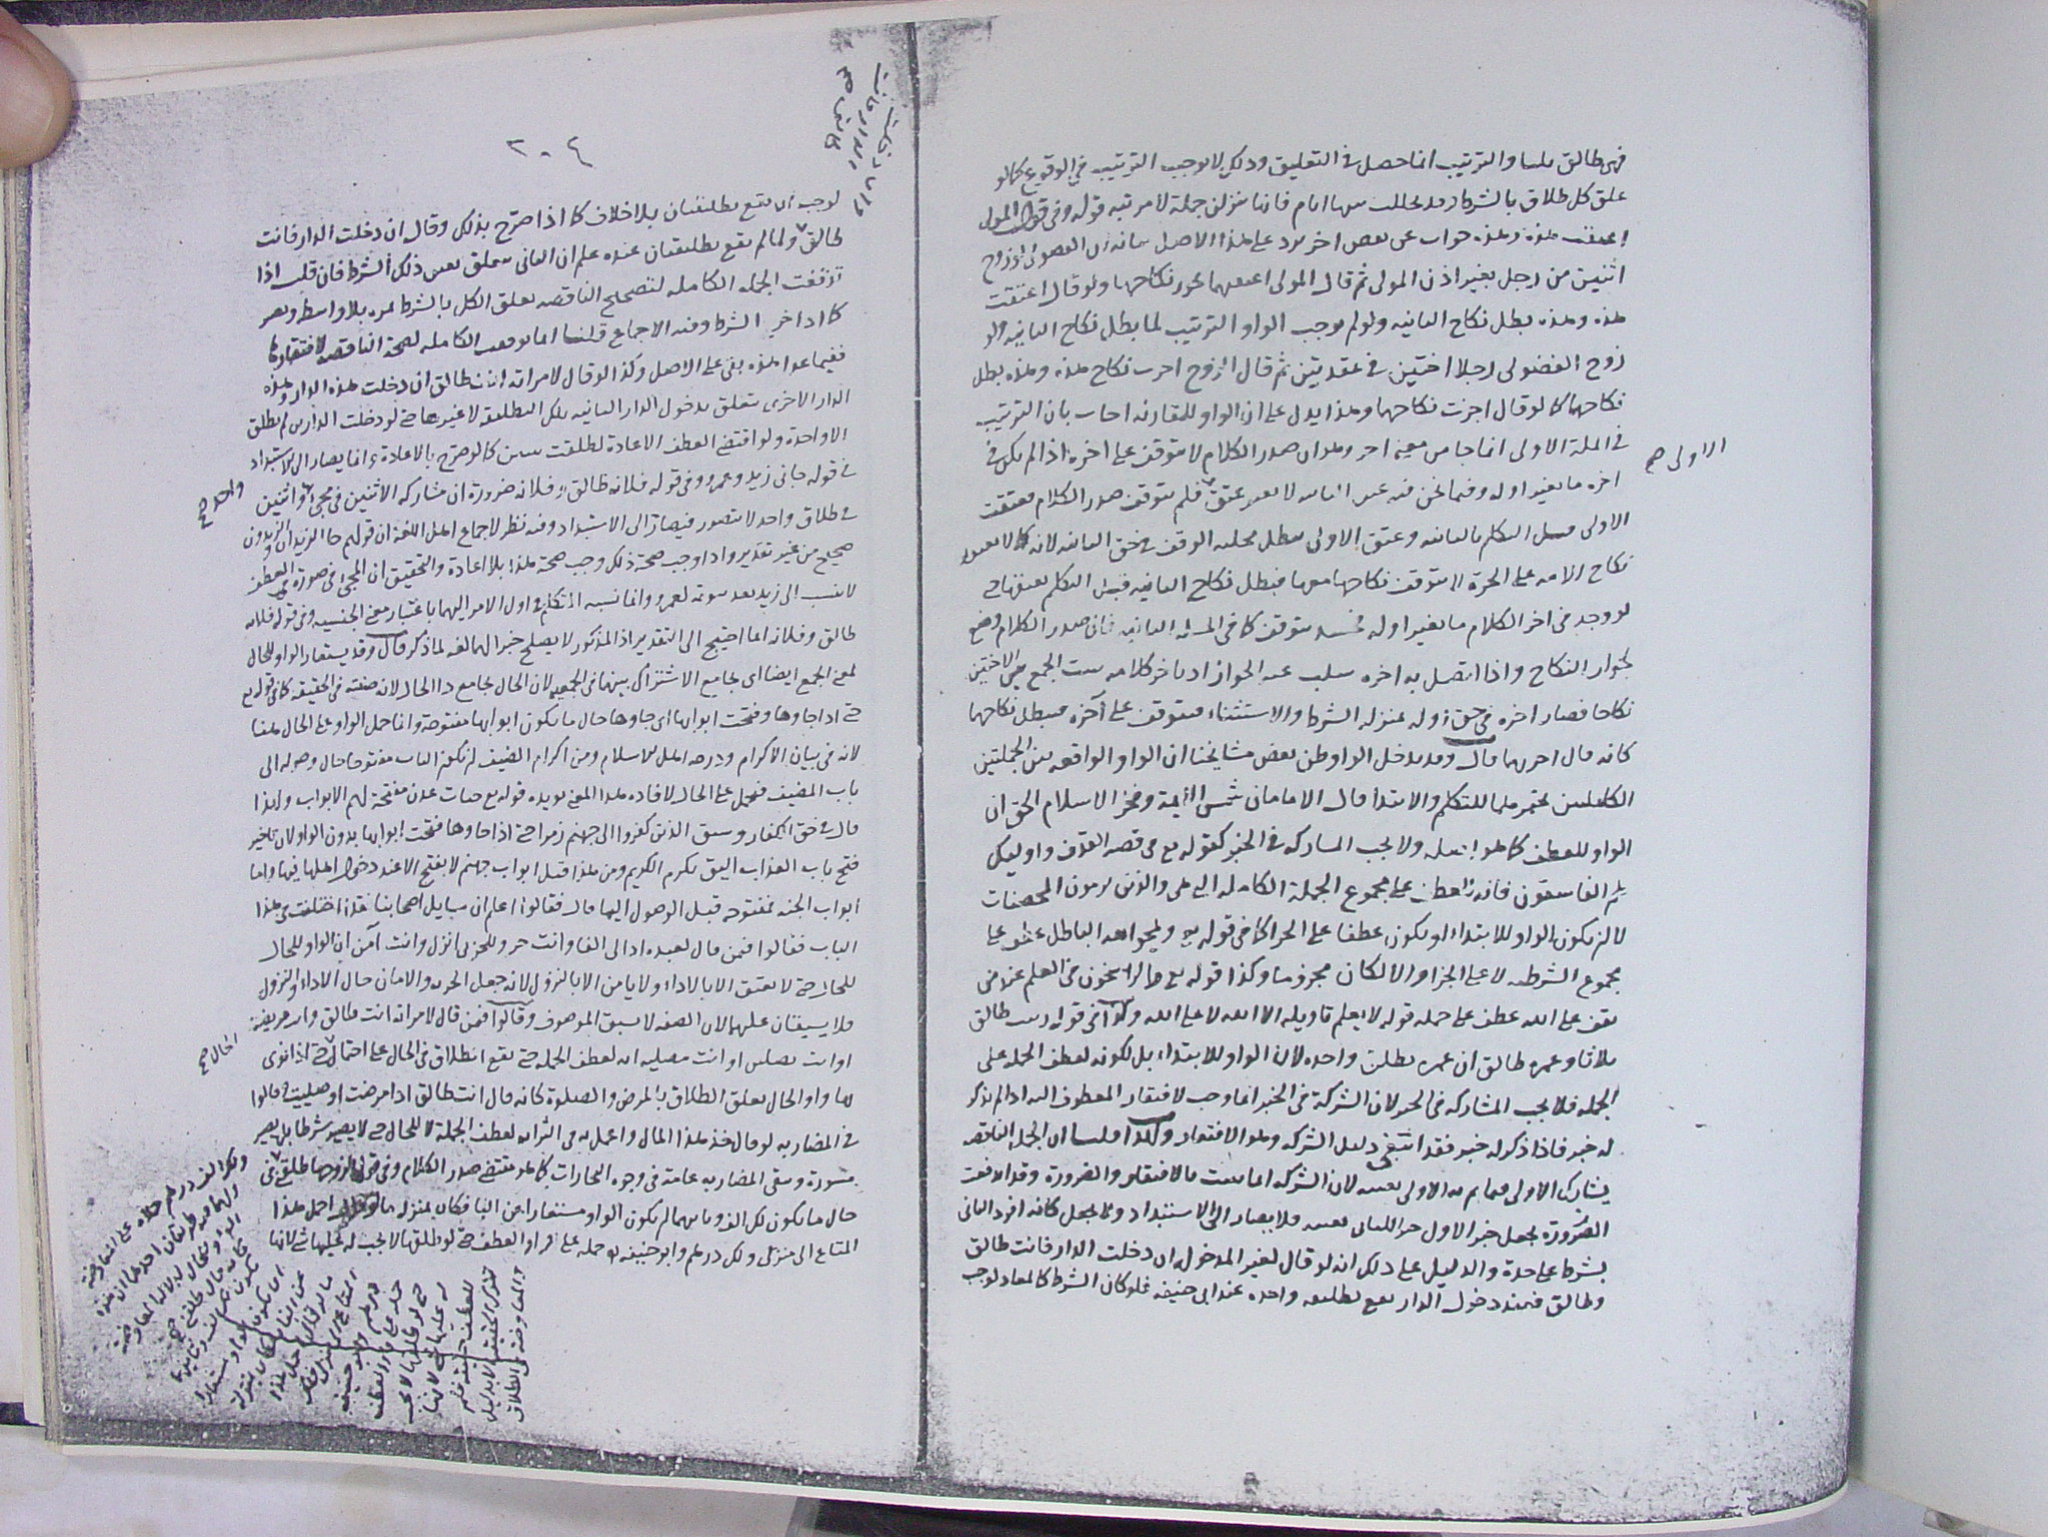 فهى طالق قلنا والترتيب انما حصل فى التعليق وذلك لا يوجب الترتيب فى الوقوع كما لو
علق كل طلاق بالشرط وقد تخللت بينهما ايام فانها تنزلن جملة لا مرتبة قوله وفى قول المولى
اعتقت هذه وهذه جواب عن بعض اخر يرد على هذا الاصل بيانه ان الفضولى اذا زوج
اثنين من رجل بغير اذن المولى ثم قال المولى اعتقهما يجوز نكاحهما ولو قال اعتقت
هذه وهذه بطل نكاح الثانية ولو لم يوجب الواو الترتيب لما بطل نكاح الثانية ولو
زوج الفضولى رجلا اختين فى عقدتين ثم قال الزوج اجزت نكاح هذه وهذه بطل
نكاحهما كما لو قال اجزت نكاحهما وهذا يدل على ان الواو للمقارنة اجاب بان الترتيب
فى المسئلة الاولى انما جا من معنى اخر وهو ان صدر الكلام لا يتوقف على اخره اذا لم يكن فى
الاولى صح
اخره ما يغير اوله وفيما نحن فيه عتق الثانية لا يغير عتق فلم يتوقف صدر الكلام فعتقت
الاولى قبل التكلم بالثانية وعتق الاولى يبطل محلية الوقف فى حق الثانية لانه
نكاح الامة على الحرة لا يتوقف نكاحها معها فبطل نكاح الثانية قبل التكلم بعتقها حتى
لو وجد فى اخر الكلام ما يغير اوله يتوقف كما فى المسئلة الثانية فان صدر الكلام وضع
لجواز النكاح واذا اتصل به اخره سلب عنه الجواز اذ باخر كلامه يثبت الجمع بين الاختين
نكاحا فصار اخره فى حق اوله بمنزلة الشرط والاستثناء فيتوقف على آخره فيبطل نكاحهما
كانه قال اجزتهما قال وقد يدخل الواو ظن بعض مشايخنا ان الواو الواقعة بين الجملتين
الكاملتين للنظم والابتدا قال الامامان شمس الائمة وفخر الاسلام الحق ان
الواو للعطف كما هو اصله ولا يجب المشاركة فى الخبر كقوله تع فى قصة القذف واولئك
هم الفاسقون فانه عطف على مجموع الجملة الكاملة الى هى والذين يرمون المحصنات
لا ان يكون الواو للابتداء او يكون عطفا على الجزا كما فى قوله تع ويمحو الله الباطل عطف على
مجموع الشرطية لا على الجزا والا لكان مجزوما وكذا قوله تع والراسخون فى العلم عند من
يقف على الله عطف على جملة قوله لا يعلم تاويله الا الله لا على الله وكذا فى قوله زينب طالق
ثلاثا وعمرة طالق ان عمرة تطلق واحدة لا ان الواو للابتداء بل لكونه لعطف الجملة على
الجملة فلا يجب المشاركة فى الخبر لان الشركة فى الخبر انما وجب لافتقار المعطوف اليه اذا لم يذكر
له خبر فاذا ذكر له خبر فقد انتفى دليل الشركة وهو الافتقار ولهذا قلنا ان الجملة الناقصة
يشارك الاولى فيما يتم به الاولى بعينه لان الشركة انما يثبت بالافتقار والضرورة وقد اندفعت
الضرورة بجعل خبر الاول خبرا للثانى بعينه فلا يصار الى الاستبداد ولا يجعل كانه افرد الثانى
بشرط على حدة والدليل على ذلك انه لو قال لغير المدخولة ان دخلت الدار فانت طالق
وطالق فعند دخول الدار يقع تطليقة واحدة عند ابى حنيفة فلو كان الشرط كالمعاد لوجب
٢٠٤
وان دخلت الدار فانت طالق صح
لوجب ان يقع تطليقتان بلا خلاف كما اذا صرح بذلك وقال ان دخلت الدار فانت
طالق ولما لم يقع تطليقتان عنده علم ان الثانى يتعلق بعين ذلك الشرط فان قلت اذا
توقفت الجملة الكاملة لتصحيح الناقصة تعلق الكل بالشرط مرة بلا واسطة ويصير
كما اذا اخر الشرط وفيه الاجماع قلنا انما توقفت الكاملة لصحة الناقصة لافتقارها
ففيما عدا هذه بقى على الاصل وكذا لو قال لامراته انت طالق ان دخلت هذه الدار وهذه
الدار الاخرى يتعلق بدخول الدار الثانية تلك التطليقة لا غيرها حتى لو دخلت الدارين لم تطلق
الا واحدة ولو اقتضى العطف الاعادة لطلقت ثنتين كما لو صرح بالاعادة وانما يصار الى الاستبداد
فى قوله جانى زيد وعمرو وفى قوله فلانة طالق وفلانة ضرورة ان مشاركة الاثنين فى مجئ واثنين
واحد صح
فى طلاق واحد لا يتصور فيصار الى الاستبداد وفيه نظر لاجماع اهل اللغة ان قولهم جا الزيدان والزيدون
صحيح من غير تقدير واذا وجب صحة ذلك وجب صحة هذا بلا اعادة والتحقيق ان المجئ فى صورة العطف
لا ينسب الى زيد بعد ثبوته لعمرو وانما نسبه المتكلم فى اول الامر اليهما باعتبار معنى الجنسية وفى قوله فلانة
طالق وفلانة انما احتيج الى التقدير اذ المذكور لا يصلح خبرا لهما لغة لما ذكر قال وقد يستعار الواو للحال
لمعنى الجمع ايضا اى بجامع الاشتراك بينهما فى الجمعية لان الحال يجامع ذا الحال لانه صفته فى الحقيقة كما فى قوله تع
حتى اذا جاوها وفتحت ابوابها اى جاوها حال ما يكون ابوابها مفتوحة وانما حمل الواو على الحال هاهنا
لانه فى بيان الاكرام ودرجة اهل الاسلام ومن اكرام الضيف ان يكون الباب مفتوحا حال وصوله الى
باب المضيف فحمل على الحال لافادة هذا المعنى يؤيده قوله تع جنات عدن مفتحة لهم الابواب ولهذا
قال فى حق الكفار وسيق الذين كفروا الى جهنم زمرا حتى اذا جاوها فتحت ابوابها بدون الواو لان تاخير
فتح باب العذاب اليق بكرم الكريم ومن هذا قيل ابواب جهنم لا يفتح الا عند دخول اهلها فيها واما
ابواب الجنة مفتوحة قبل الوصول اليها قال فقالوا اعلم ان مسايل اصحابنا قد اختلفت فى هذا
الباب فقالوا فمن قال لعبده اد الى الفا وانت حر وللحربى انزل وانت آمن ان الواو للحال
للحال حتى لا يعتق الا بالاداء ولا يامن الا بالنزول لانه جعل الحرية والامان حال الاداء والنزول
فلا يسبقان عليهما لان الصفة لا يسبق الموصوف وقالوا فمن قال لامراته انت طالق وانت مريضة
او انت تصلين او انت مصلية انه لعطف الجملة حتى يقع الطلاق فى الحال على احتمال حتى اذا نوى
الحال صح
بها واو الحال تعلق الطلاق بالمرض والصلوة كانه قال انت طالق اذا مرضت او صليت وقالوا
فى المضاربة لو قال خذ هذا المال واعمل به فى البز انه لعطف الجملة لا للحال حتى لا يصير شرطا بل يصير
مشورة وتبقى المضاربة عامة فى وجوه التجارات كما هو مقتضى صدر الكلام وفى قول لزوجها طلقنى
حال ما يكون لك الف وما بينهما لم يكون الواو مستعارا عن البا فكان بمنزلة ما لو قال احمل هذا
المتاع الى منزلى ولك درهم وابو حنيفة حمله على واو العطف حتى لو طلقها لا يجب له عليها شى لانها
ولك الف درهم حملاه على المعاوضة
ولهما فيه طريقان احدهما ان هذه
الواو للحال لدلالة المعاوضة